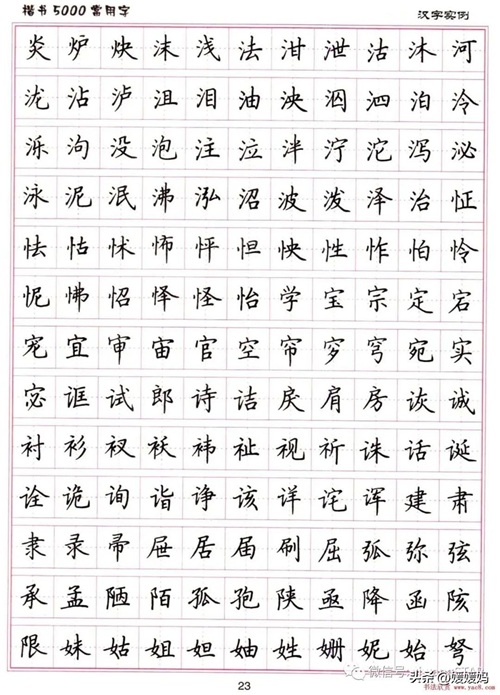 楷书5000常用字 汉字实例
炎炉炔沫浅法泔泄沽沐河
泷沾泸沮泪油泱泅泗泊泠
泺泃没泡注泣泮泞沱泻泌
泳泥泯沸泓沼波泼泽治怔
怯怙怵怖怦怛怏性怍怕怜
怩怫怊怿怪怡学宝宗定宕
宠宜审宙官空帘穸穹宛实
宓诓试郎诗诘戾肩房诙诚
衬衫衩袄祎祉视祈诛话诞
诠诡询诣诤该详诧诨建肃
隶录帚屉居届刷屈弧弥弦
承孟陋陌孤孢陕亟降函陔
限妹姑姐妲妯姓姗妮始弩
23
头条 @媛媛妈